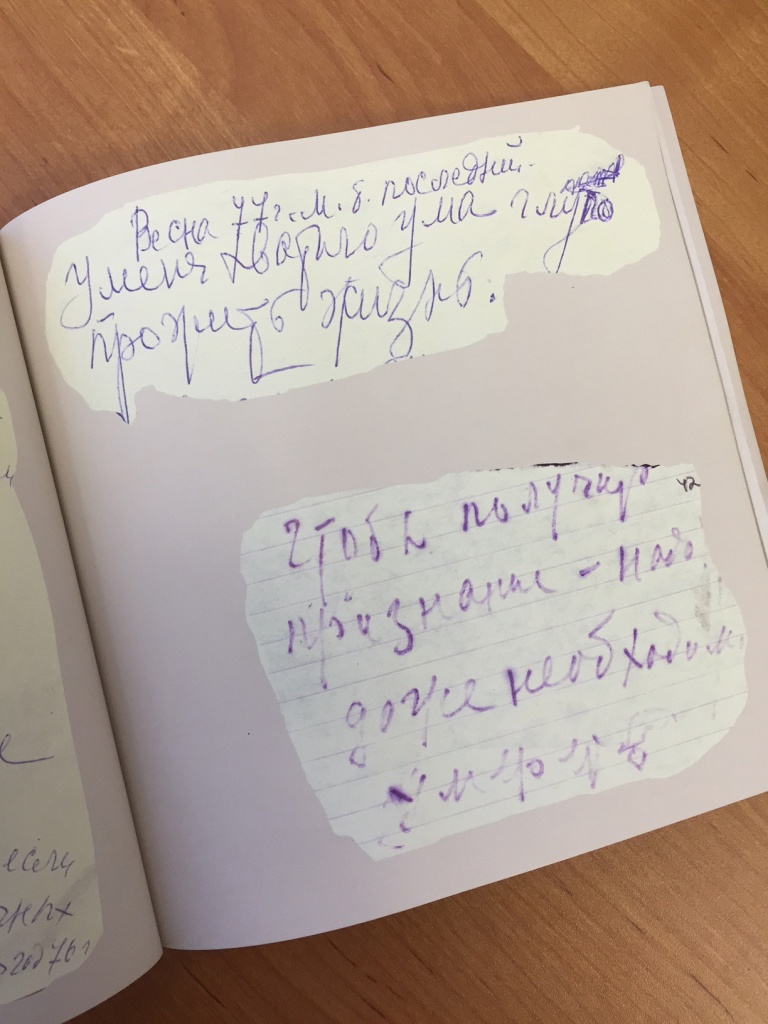 Весна 77 г. м. б. последний.
У меня хватило ума глупо
прожить жизнь.
42
Чтобы получить
признание - надо,
даже необходимо
умереть
е
если
ных
год 76 г